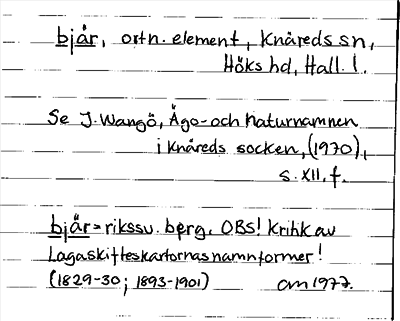 bjår, ortn. element, Knåreds sn,
Höks hd, Hall. l.
Se J. Wangö, Ägo- och naturnamnen
i Knåreds socken, (1970),
s. XII, f.
bjår = rikssv. berg. OBS! Kritik av
Lagaskifteskartornas namnformer!
(1829-30; 1893-1901) om 1977.